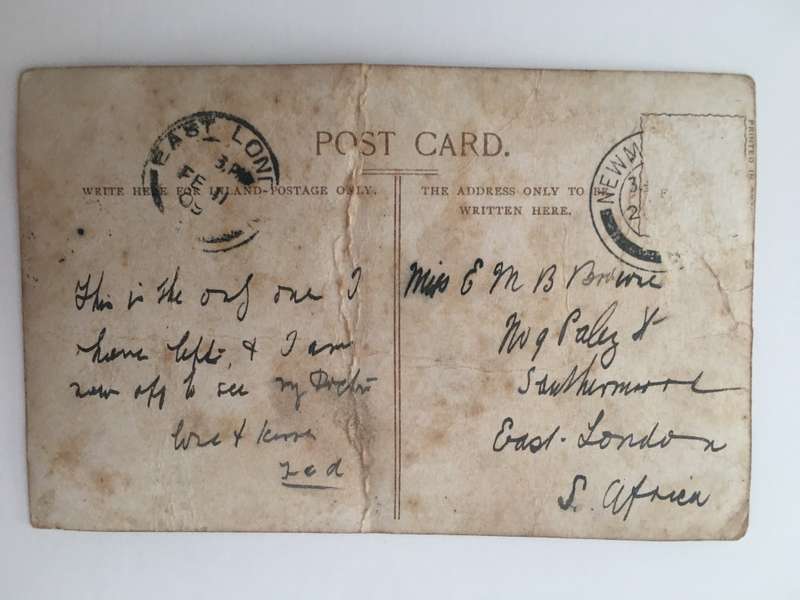 EAST LON
3 P
FE 11
09
POST CARD.
WRITE HERE FOR INLAND POSTAGE ONLY.
THE ADDRESS ONLY TO BE
WRITTEN HERE.
NEWA
3
2
PRINTED IN
This is the only one I
have left, & I am
now off to see my Doctor
love &
Miss E M B Browne
No 9 Paley St
East London
S. Africa